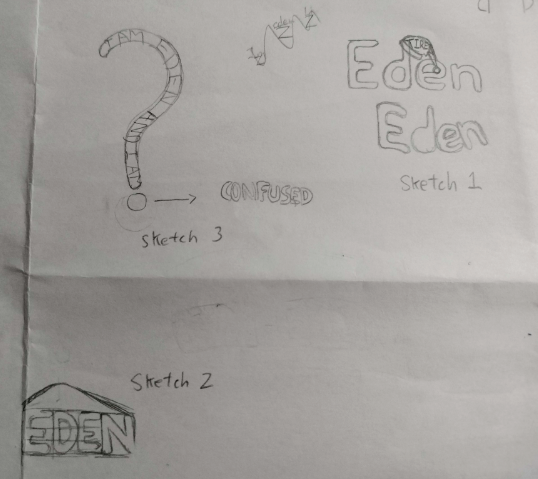 I AM EDEN AND I AM
CONFUSED
Sketch 3
Eden
Eden
Sketch 1
Sketch 2
EDEN